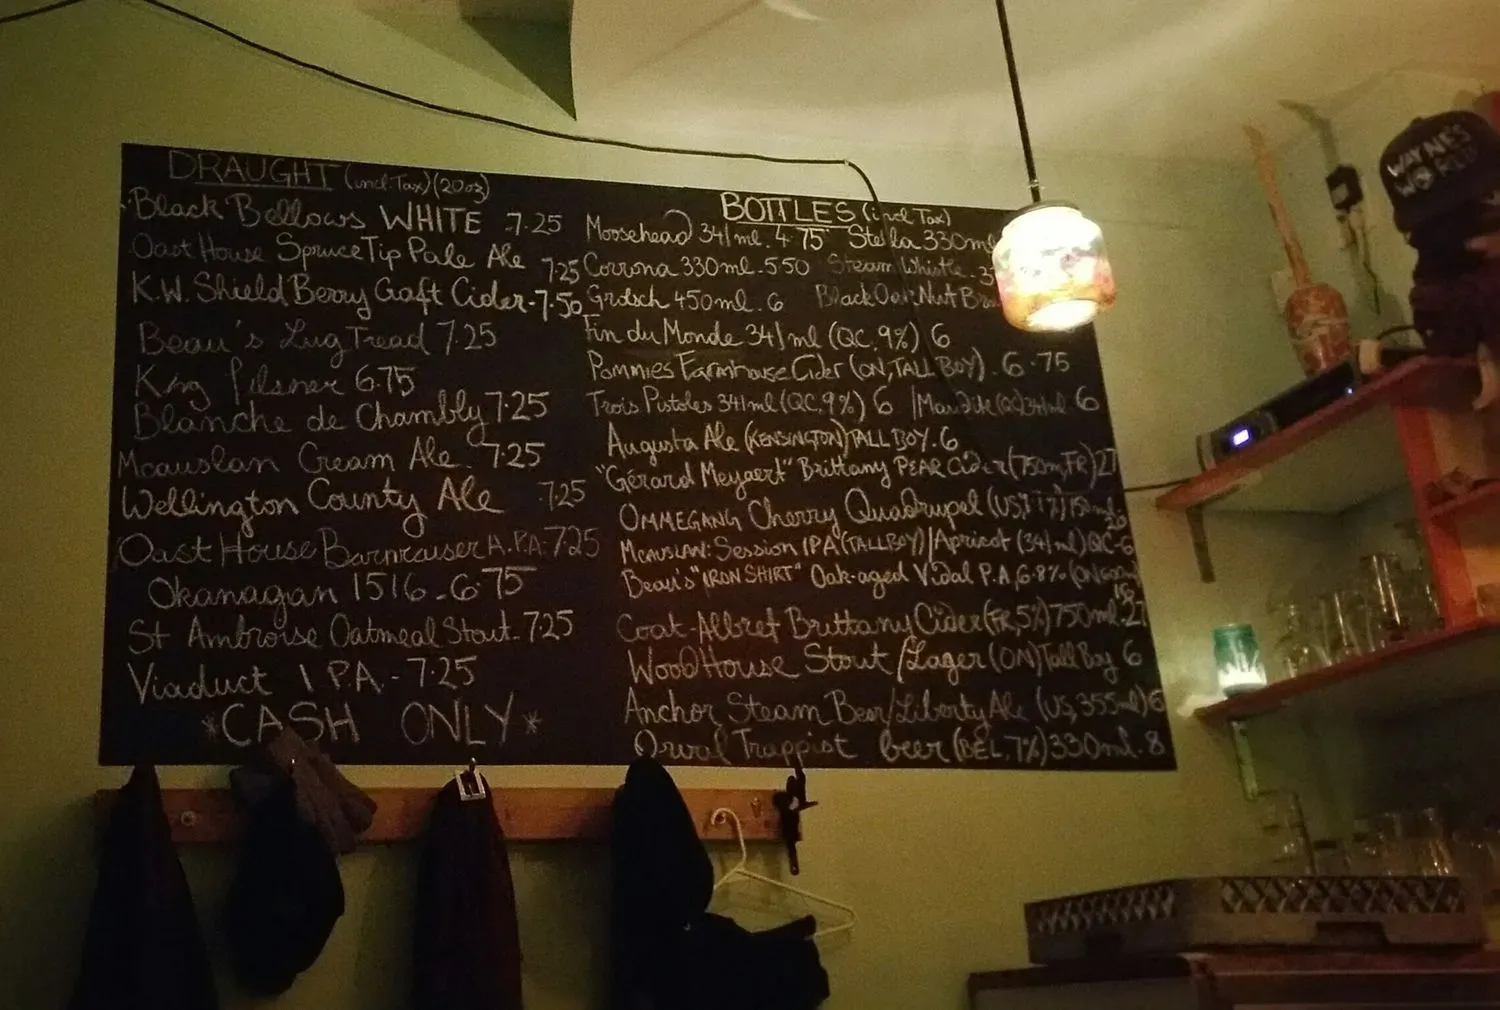 DRAUGHT (incl. Tax) (20oz)
Black Bellows WHITE 7.25
Oast House Spruce Tip Pale Ale 7.25
K.W. Shield Berry Craft Cider - 7.50
Beau's Lug Tread 7.25
King Pilsner 6.75
Blanche de Chambly 7.25
Mcauslan Cream Ale. 7.25
Wellington County Ale 7.25
Oast House Barnraiser A.P.A. 7.25
Okanagan 1516 - 6.75
St Ambroise Oatmeal Stout. 7.25
Viaduct I P.A. - 7.25
*CASH ONLY*
BOTTLES (incl Tax)
Moosehead 341ml. 4.75 Stella 330ml
Corona 330ml - 5.50 Steam Whistle. 3
Grolsch 450ml. 6 Black Oak Nut Br
Fin du Monde 341ml (QC, 9%) 6
Pommies Farmhouse Cider (ON, TALL BOY). 6.75
Trois Pistoles 341ml (QC, 9%) 6 | Maudite (QC) 341ml 6
Augusta Ale (KENSINGTON) TALL BOY. 6
"Gérard Meyaert" Brittany PEAR Cider (750ml, FR) 27
OMMEGANG Cherry Quadrupel (US, 750ml. 20
MCAUSLAN: Session IPA (TALL BOY) | Apricot (341ml) QC - 6
Beau's "IRON SHIRT" Oak-aged Vidal P.A, 6.8% (ON 600ml)
Coat-Albret Brittany Cider (FR, 5%) 750ml. 27
WOODHOUSE Stout / Lager (ON) Tall Boy 6
Anchor Steam Beer / Liberty Ale (US, 355ml) 6
Orval Trappist beer (BEL, 7%) 330ml. 8
WAYNE'S
WORLD